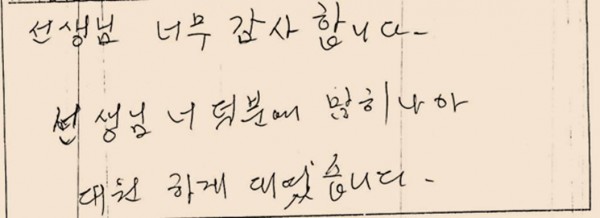 선생님 너무 감사 합니다.
선생님 너 덕분에 많히 나아
대원 하게 대엿습니다.